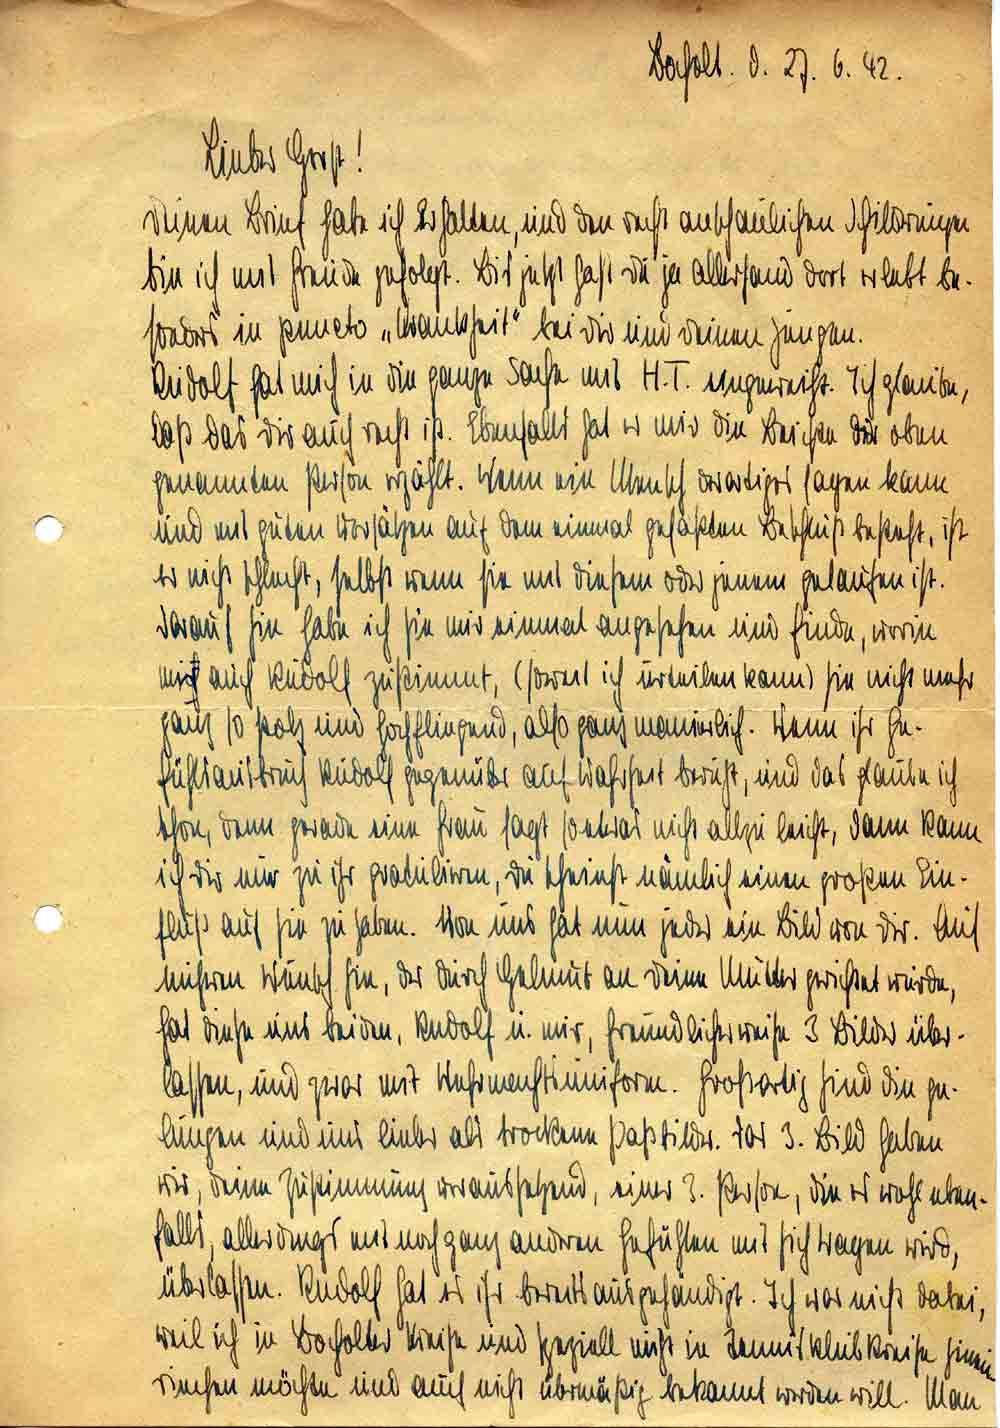 Bocholt. d. 27. 6. 42.
Lieber Horst!
Deinen Brief habe ich erhalten, und den recht anschaulichen Schilderungen
bin ich mit Freude gefolgt. Bis jetzt hast Du ja allerhand dort erlebt be-
sonders in puncto „Krankheit“ bei Dir und Deinen Jungen.
Rudolf hat mich in die ganze Sache mit H.T. eingeweiht. Ich glaube,
daß das Dir auch recht ist. Ebenfalls hat er mir die Beichte der oben
genannten Person erzählt. Wenn ein Mensch derartiges sagen kann
und mit guten Vorsätzen auf dem einmal gefaßten Beschluß besteht, ist
er nicht schlecht, selbst wenn sie mit diesem oder jenem gelaufen ist.
Darauf hin habe ich sie mir einmal angesehen und finde, worin
mir auch Rudolf zustimmt, (soweit ich urteilen kann) sie nicht mehr
ganz so stolz und hochfliegend, also ganz manierlich. Wenn ihr Ge-
fühlsausbruch Rudolf gegenüber auf Wahrheit beruht, und das glaube ich
schon, denn gerade eine Frau sagt so etwas nicht allzu leicht, dann kann
ich Dir nur zu ihr gratulieren, Du scheinst nämlich einen großen Ein-
fluß auf sie zu haben. Von uns hat nun jeder ein Bild von Dir. Auf
unseren Wunsch hin, der durch Helmut an Deine Mutter gerichtet wurde,
hat diese uns beiden, Rudolf u. mir, freundlicherweise 3 Bilder über-
lassen, und zwar mit Wehrmachtsuniform. Großartig sind die ge-
lungen und uns lieber als trockene Paßbilder. Das 3. Bild haben
wir, Deine Zustimmung voraussetzend, einer 3. Person, die es wohl eben-
falls, allerdings mit noch ganz anderen Gefühlen mit sich tragen wird,
überlassen. Rudolf hat es ihr bereits ausgehändigt. Ich war nicht dabei,
weil ich in Bocholter Kreise und speziell nicht in Tennisklubkreise hinein
riechen möchte und auch nicht übermäßig bekannt werden will. Man